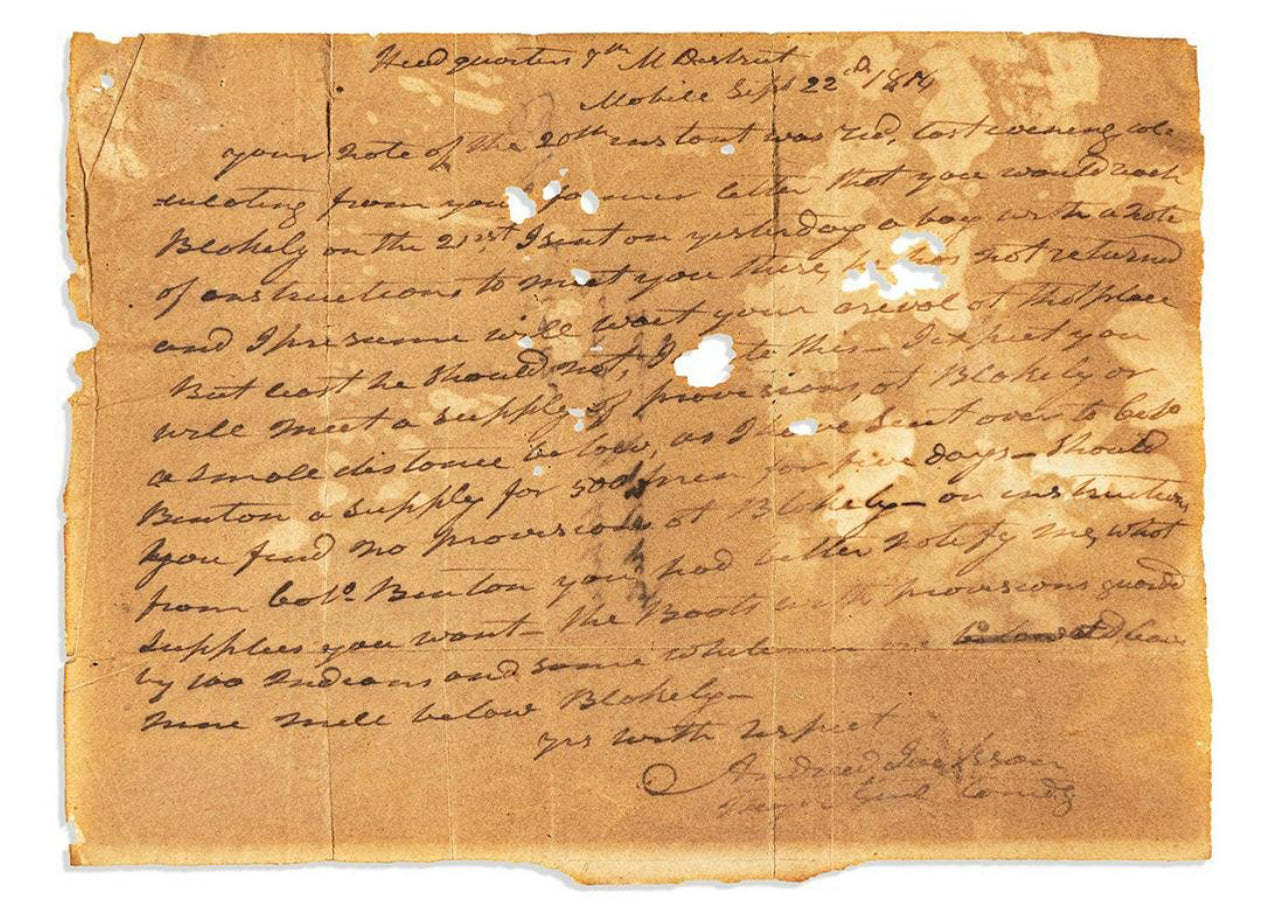 Head quarters 7th M District
Mobile Sept 22nd 1814
your note of the 20th instant was recd, last evening cal-
culating from your former letter that you would reach
Blakely on the 21rst I sent on yesterday a boy with a note
of instructions to meet you there, he has not returned
and I presume will wait your arival at that place
But least he should not, I this— I expect you
will meet a supply of provisions, at Blakely or
a small distance below, as I have sent over to Colo
Benton a supply for 500 men for five days— Should
you find no provisions at Blakely— or instructions
from Colo. Benton you had better notify me, what
supplies you want— the Boats with provisions guarded
by 100 Indians and some whitemen are
nine mile below Blakely—
yrs with respect
Andrew Jackson
Major Genl Comdg